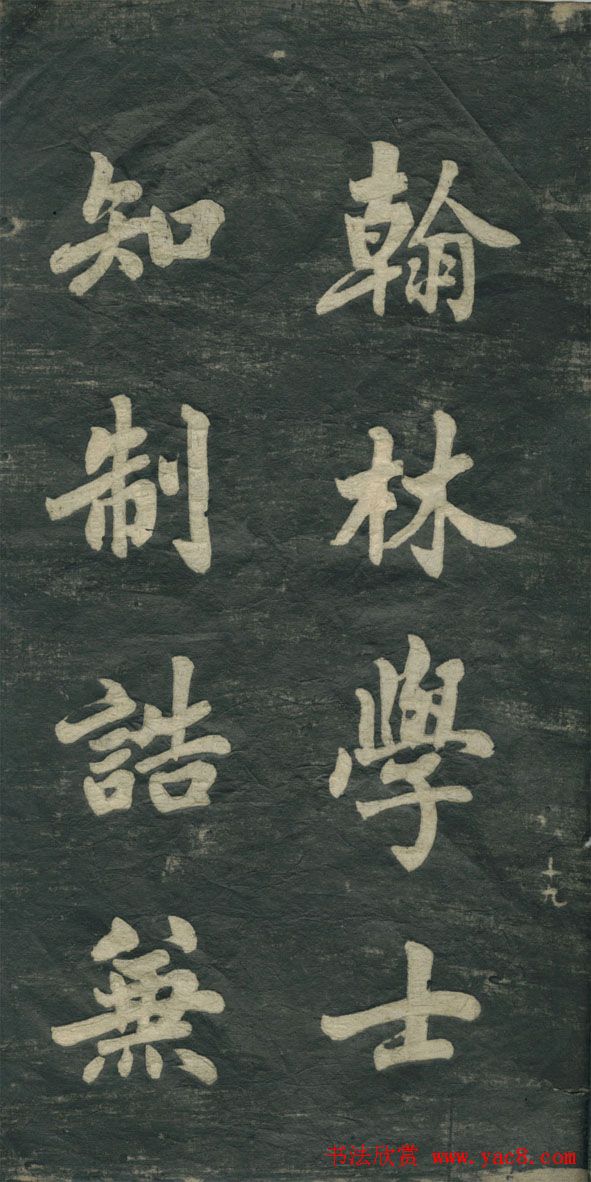 翰林學士
知制誥兼
十九
书法欣赏 www.yac8.com